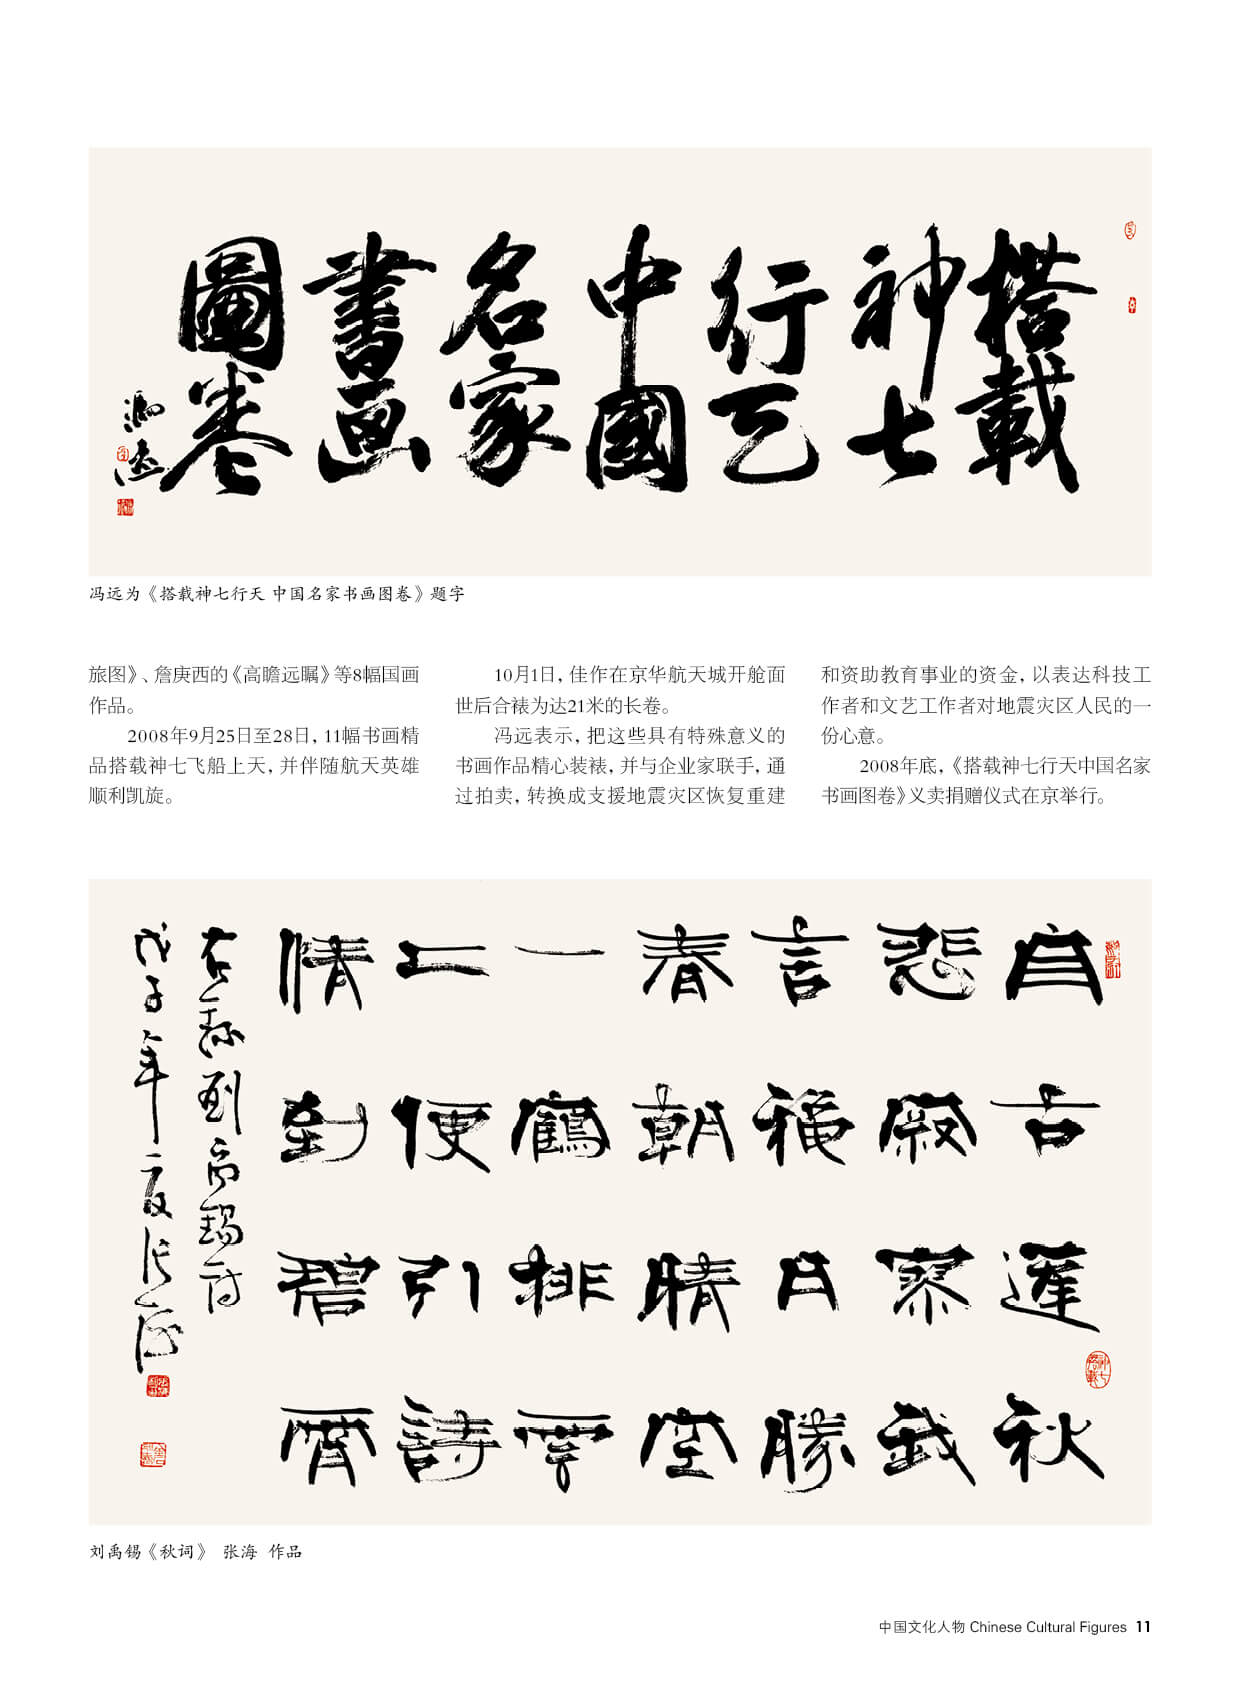 搭載
神七
行天
中國
名家
書画
圖卷
冯远
冯远为《搭载神七行天 中国名家书画图卷》题字
旅图》、詹庚西的《高瞻远瞩》等8幅国画
作品。
2008年9月25日至28日，11幅书画精
品搭载神七飞船上天，并伴随航天英雄
顺利凯旋。
10月1日，佳作在京华航天城开舱面
世后合裱为达21米的长卷。
冯远表示，把这些具有特殊意义的
书画作品精心装裱，并与企业家联手，通
过拍卖，转换成支援地震灾区恢复重建
和资助教育事业的资金，以表达科技工
作者和文艺工作者对地震灾区人民的一
份心意。
2008年底，《搭载神七行天中国名家
书画图卷》义卖捐赠仪式在京举行。
自古逢秋
悲寂寥我
言穐日勝
春朝晴空
一鶴排雲
上便引詩
情到碧霄
右録劉禹錫詩
戊子年夏張海
刘禹锡《秋词》 张海 作品
中国文化人物 Chinese Cultural Figures 11